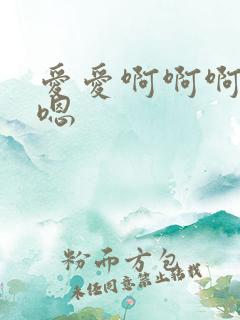 爱爱啊啊啊
嗯
粉而方包
未经同意禁止转载